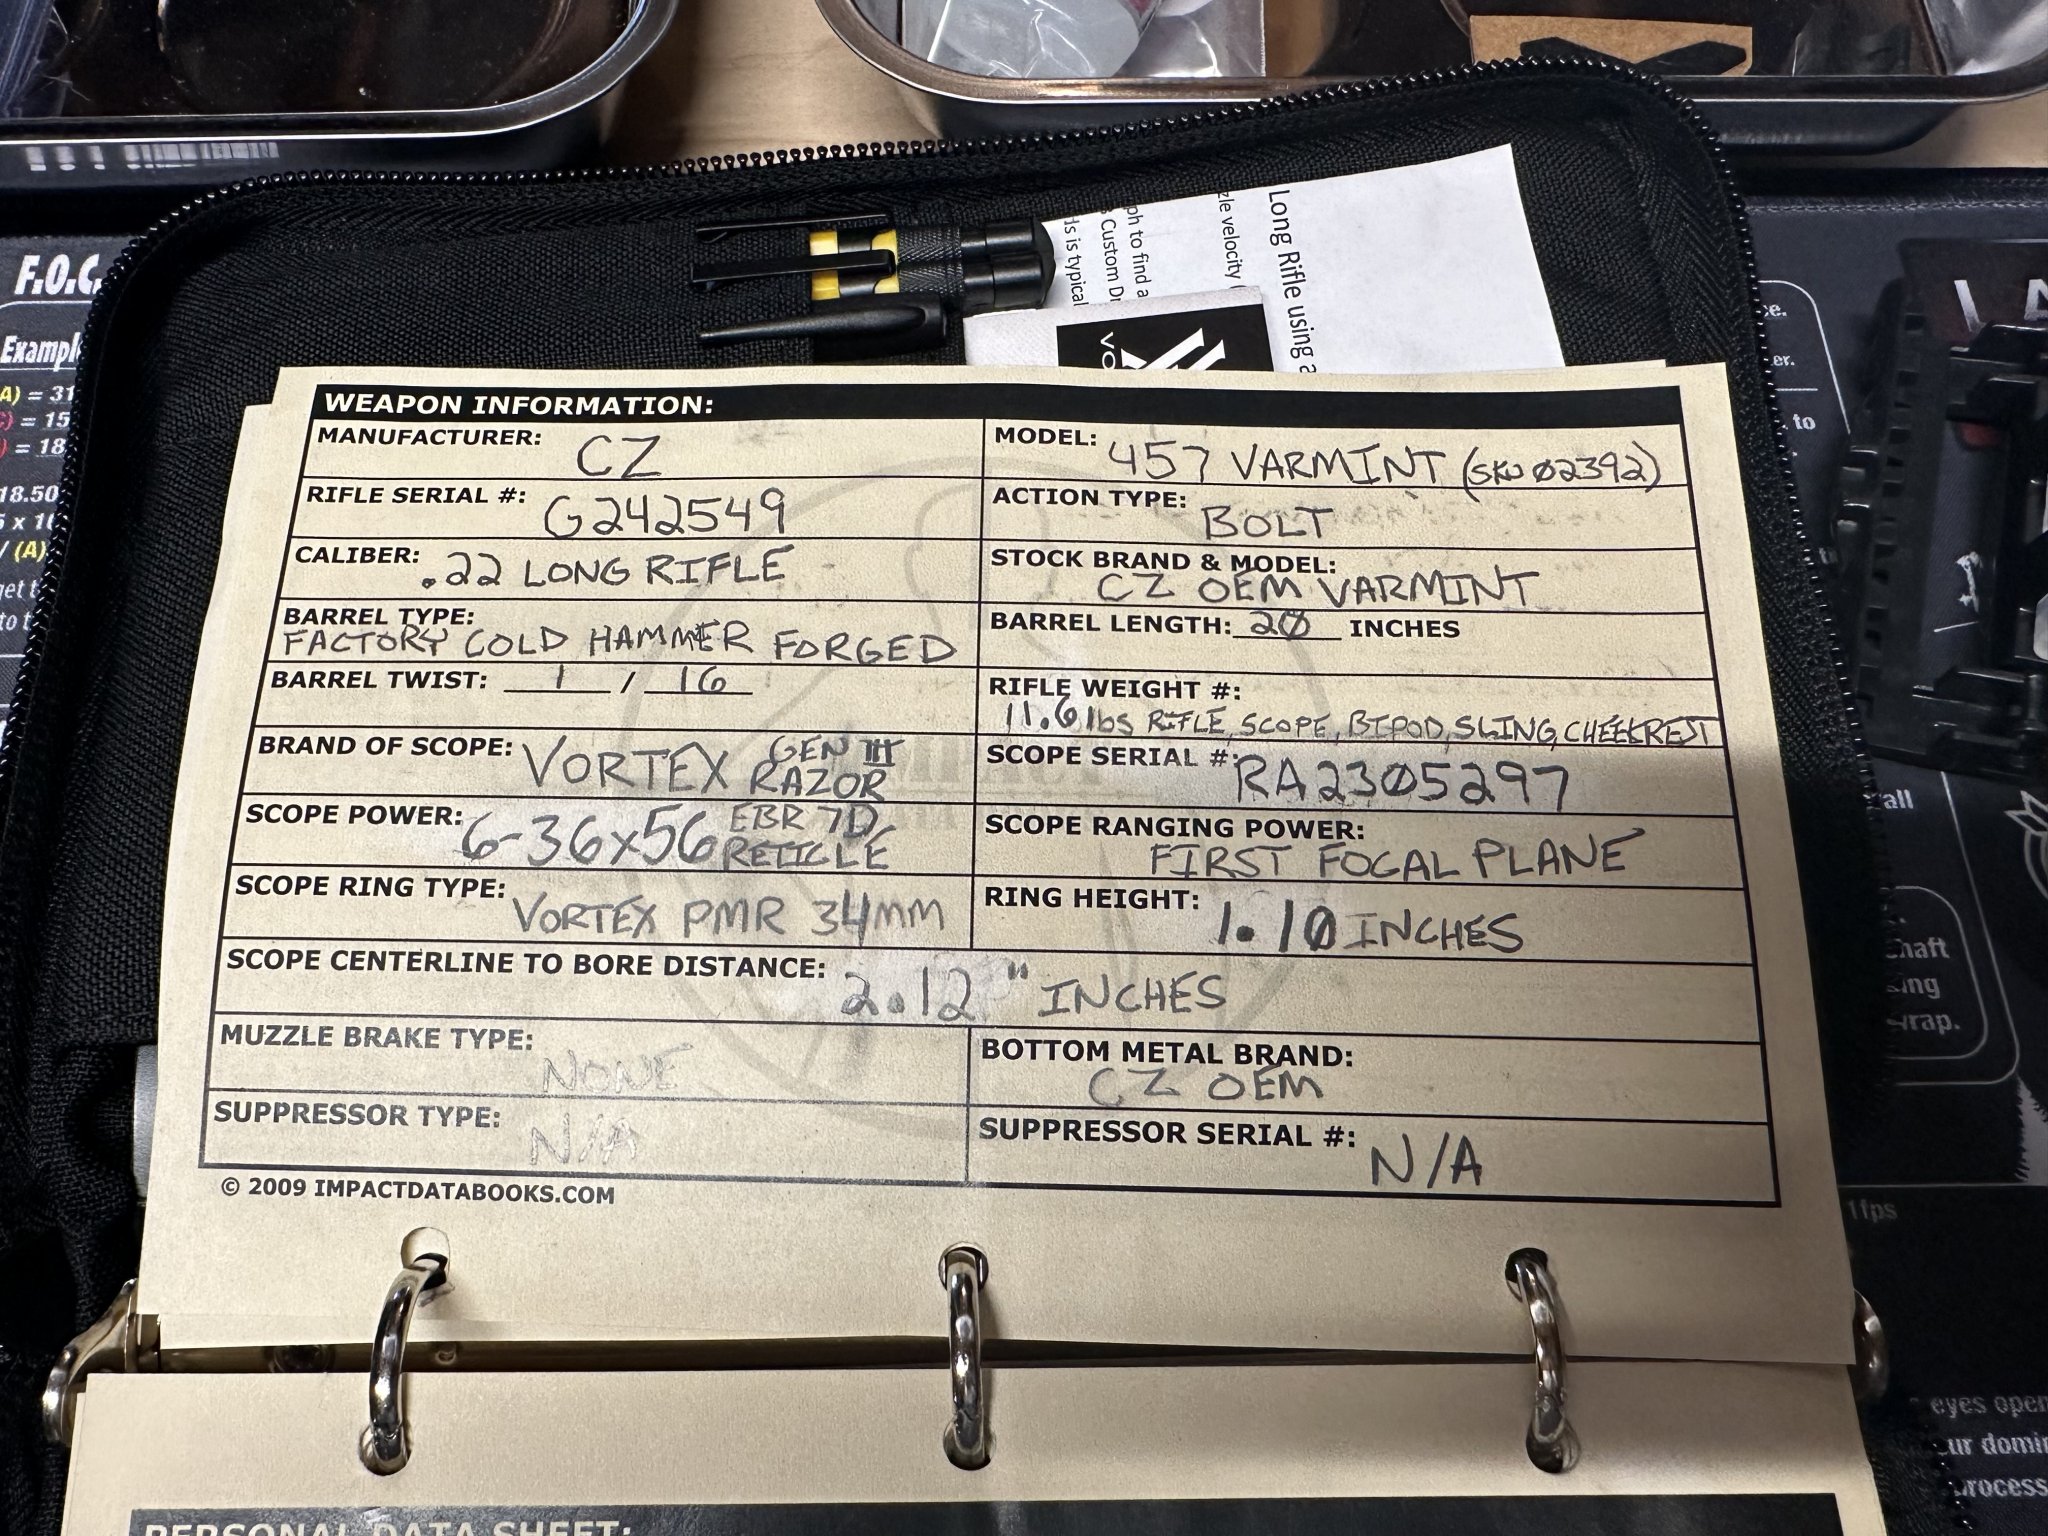 Long Rifle using a
zle velocity (
ph to find a
Custom Dr
ds is typical
VO
F.O.C.
Exampl
(A) = 31
= 15
= 18
18.50
/ (A)
get t
to t
WEAPON INFORMATION:
MANUFACTURER: CZ
MODEL: 457 VARMINT (SKU 02392)
RIFLE SERIAL #: G242549
ACTION TYPE: BOLT
CALIBER: .22 LONG RIFLE
STOCK BRAND & MODEL:
CZ OEM VARMINT
BARREL TYPE:
FACTORY COLD HAMMER FORGED
BARREL LENGTH: 20 INCHES
BARREL TWIST: 1 / 16
RIFLE WEIGHT #:
11.6 lbs RIFLE, SCOPE, BIPOD, SLING, CHEEKREST
BRAND OF SCOPE: VORTEX GEN III
RAZOR
SCOPE SERIAL #: RA2305297
SCOPE POWER: 6-36x56 EBR 7D
RETICLE
SCOPE RANGING POWER:
FIRST FOCAL PLANE
SCOPE RING TYPE: VORTEX PMR 34MM
RING HEIGHT: 1.10 INCHES
SCOPE CENTERLINE TO BORE DISTANCE: 2.12" INCHES
MUZZLE BRAKE TYPE:
NONE
BOTTOM METAL BRAND:
CZ OEM
SUPPRESSOR TYPE:
N/A
SUPPRESSOR SERIAL #: N/A
© 2009 IMPACTDATABOOKS.COM
PERSONAL DATA SHEET:
ce.
er.
to
all
haft
ing
wrap.
1fps
eyes open
ur domin
process